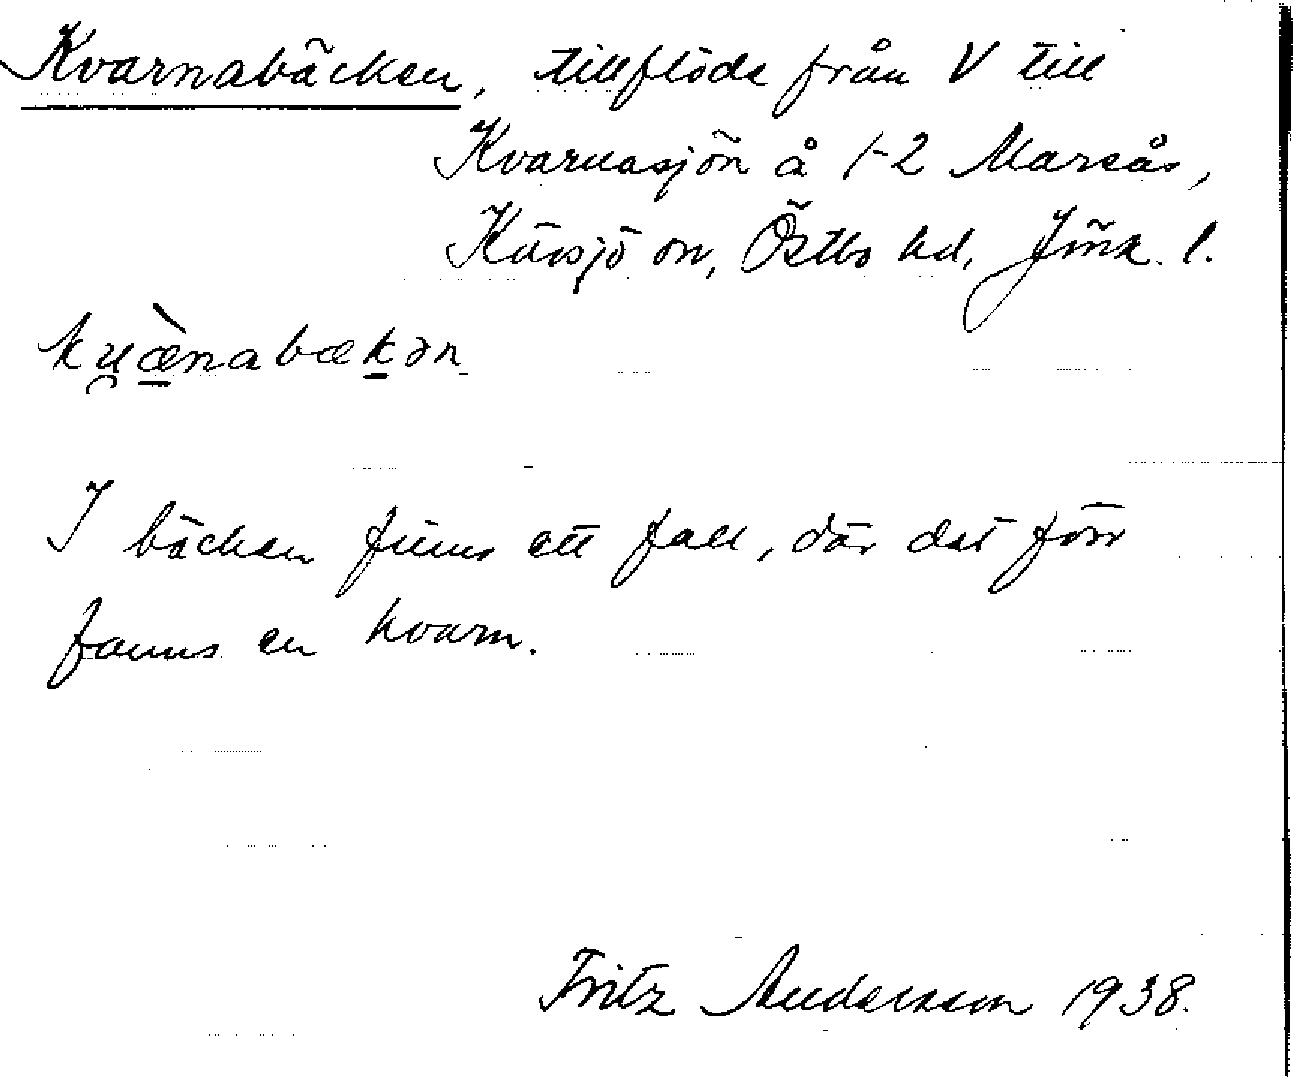 Kvarnabäcken, tillflöde från V till
Kvarnasjön å 1-2 Marsås,
Kävsjö sn, Östbo hd, Jönk. l.
ku̯æ̀nabækən
I bäcken finns ett fall, där det förr
fanns en kvarn.
Fritz Andersson 1938.